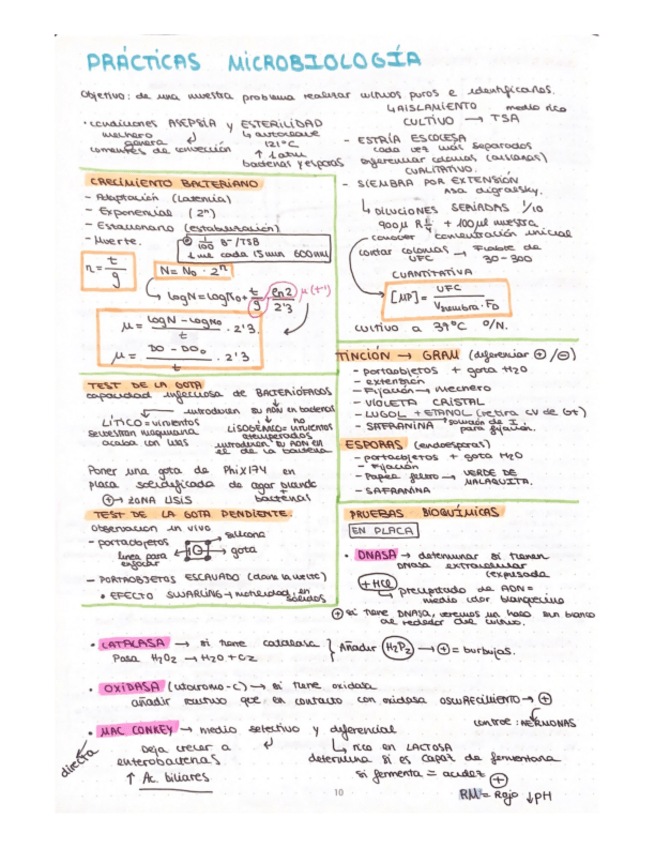 PRÁCTICAS MICROBIOLOGÍA
Objetivo: de una muestra problema realizar cultivos puros e identificarlos.
↳ AISLAMIENTO medio rico
CULTIVO → TSA
• condiciones ASEPSIA y ESTERILIDAD
mechero ↳ autoclave
genera 121°C
corrientes de convección ↑ 1 atm
bacterias y esporas
- ESTRÍA ESCOCESA
cada vez más separados
diferenciar colonias (aislarlas)
CUALITATIVO.
- SIEMBRA POR EXTENSIÓN
Asa digralsky.
↳ DILUCIONES SERIADAS 1/10
900μ + 100μl muestra
conocer concentración inicial
contar colonias → Fiable de
UFC 30-300
CUANTITATIVA
[MP] = UFC / Vsiembra · FD
CULTIVO a 37°C O/N.
CRECIMIENTO BACTERIANO
- Adaptación (Latencia)
- Exponencial (2ⁿ)
- Estacionario (estabilización)
- Muerte.
1/100 B⁻/TSB
1 mL cada 15min 600nm
n = t/g
N = N₀ · 2ⁿ
↳ logN = logN₀ + t/g · ln2/2'3 μ (t⁻¹)
μ = logN - logN₀ / t · 2'3.
μ = DO - DO₀ / t · 2'3.
TEST DE LA GOTA
capacidad infecciosa de BACTERIÓFAGOS
introducen su ADN en bacteria
LÍTICO = virulentos
secuestran maquinaria
acaba con lisis
no
LISOGÉNICO = virulentos
atemperados
introducen su ADN en
el de la bacteria
Poner una gota de PhiX174 en
placa solidificada de agar blando
⊕ → ZONA LISIS + bacterias
TEST DE LA GOTA PENDIENTE.
Observación in vivo
- portaobjetos silicona
línea para gota
enfocar
- PORTAOBJETOS EXCAVADO (dar la vuelta)
• EFECTO SWARLING → motilidad en sólidos
TINCIÓN → GRAM (diferenciar ⊕/⊖)
- portaobjetos + gota H₂O
- extensión
- Fijación → mechero
- VIOLETA CRISTAL
- LUGOL + ETANOL (retira CV de G-)
- SAFRANINA solución de I para fijación.
ESPORAS (endoesporas)
- portaobjetos + gota H₂O
- Fijación
- Papel filtro → VERDE DE
MALAQUITA.
- SAFRANINA
PRUEBAS BIOQUÍMICAS
EN PLACA
• DNASA → determinar si tienen
DNASA extracelular
(expulsada
+HCl
↳ precipitado de ADN =
medio color blanquecino
⊕ si tiene DNASA, veremos un halo sin blanco
alrededor del cultivo.
• CATALASA → si tiene catalasa } Añadir H₂O₂ → ⊕ = burbujas.
Pasa H₂O₂ → H₂O + O₂
• OXIDASA (citocromo-C) → si tiene oxidasa
añadir reactivo que en contacto con oxidasa OSCURECIMIENTO → ⊕
• MAC CONKEY → medio selectivo y diferencial
directa
Deja crecer a
enterobacterias
↑ Ac. biliares
↳ rico en LACTOSA
determina si es capaz de fermentarla
si fermenta = acidez ⊕
RM = Rojo ↓pH
10